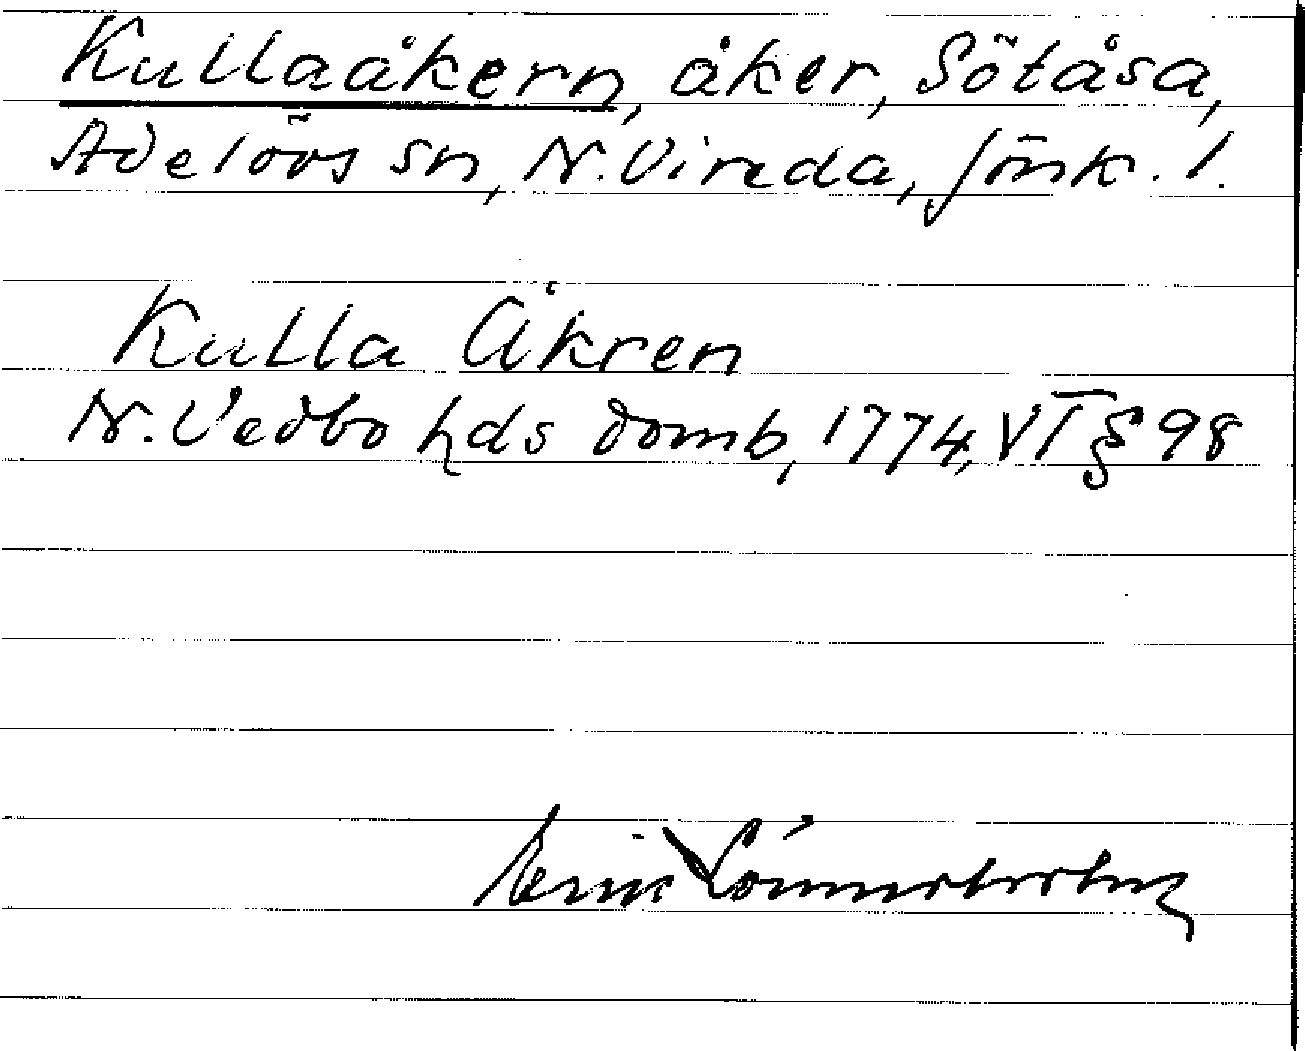 Kullaåkern, åker, Sötåsa,
Adelövs sn, N. Vireda, Jönk. l.
Kulla Åkren
N. Vedbo hds domb, 1774, VT § 98
Erik Lönnerholm